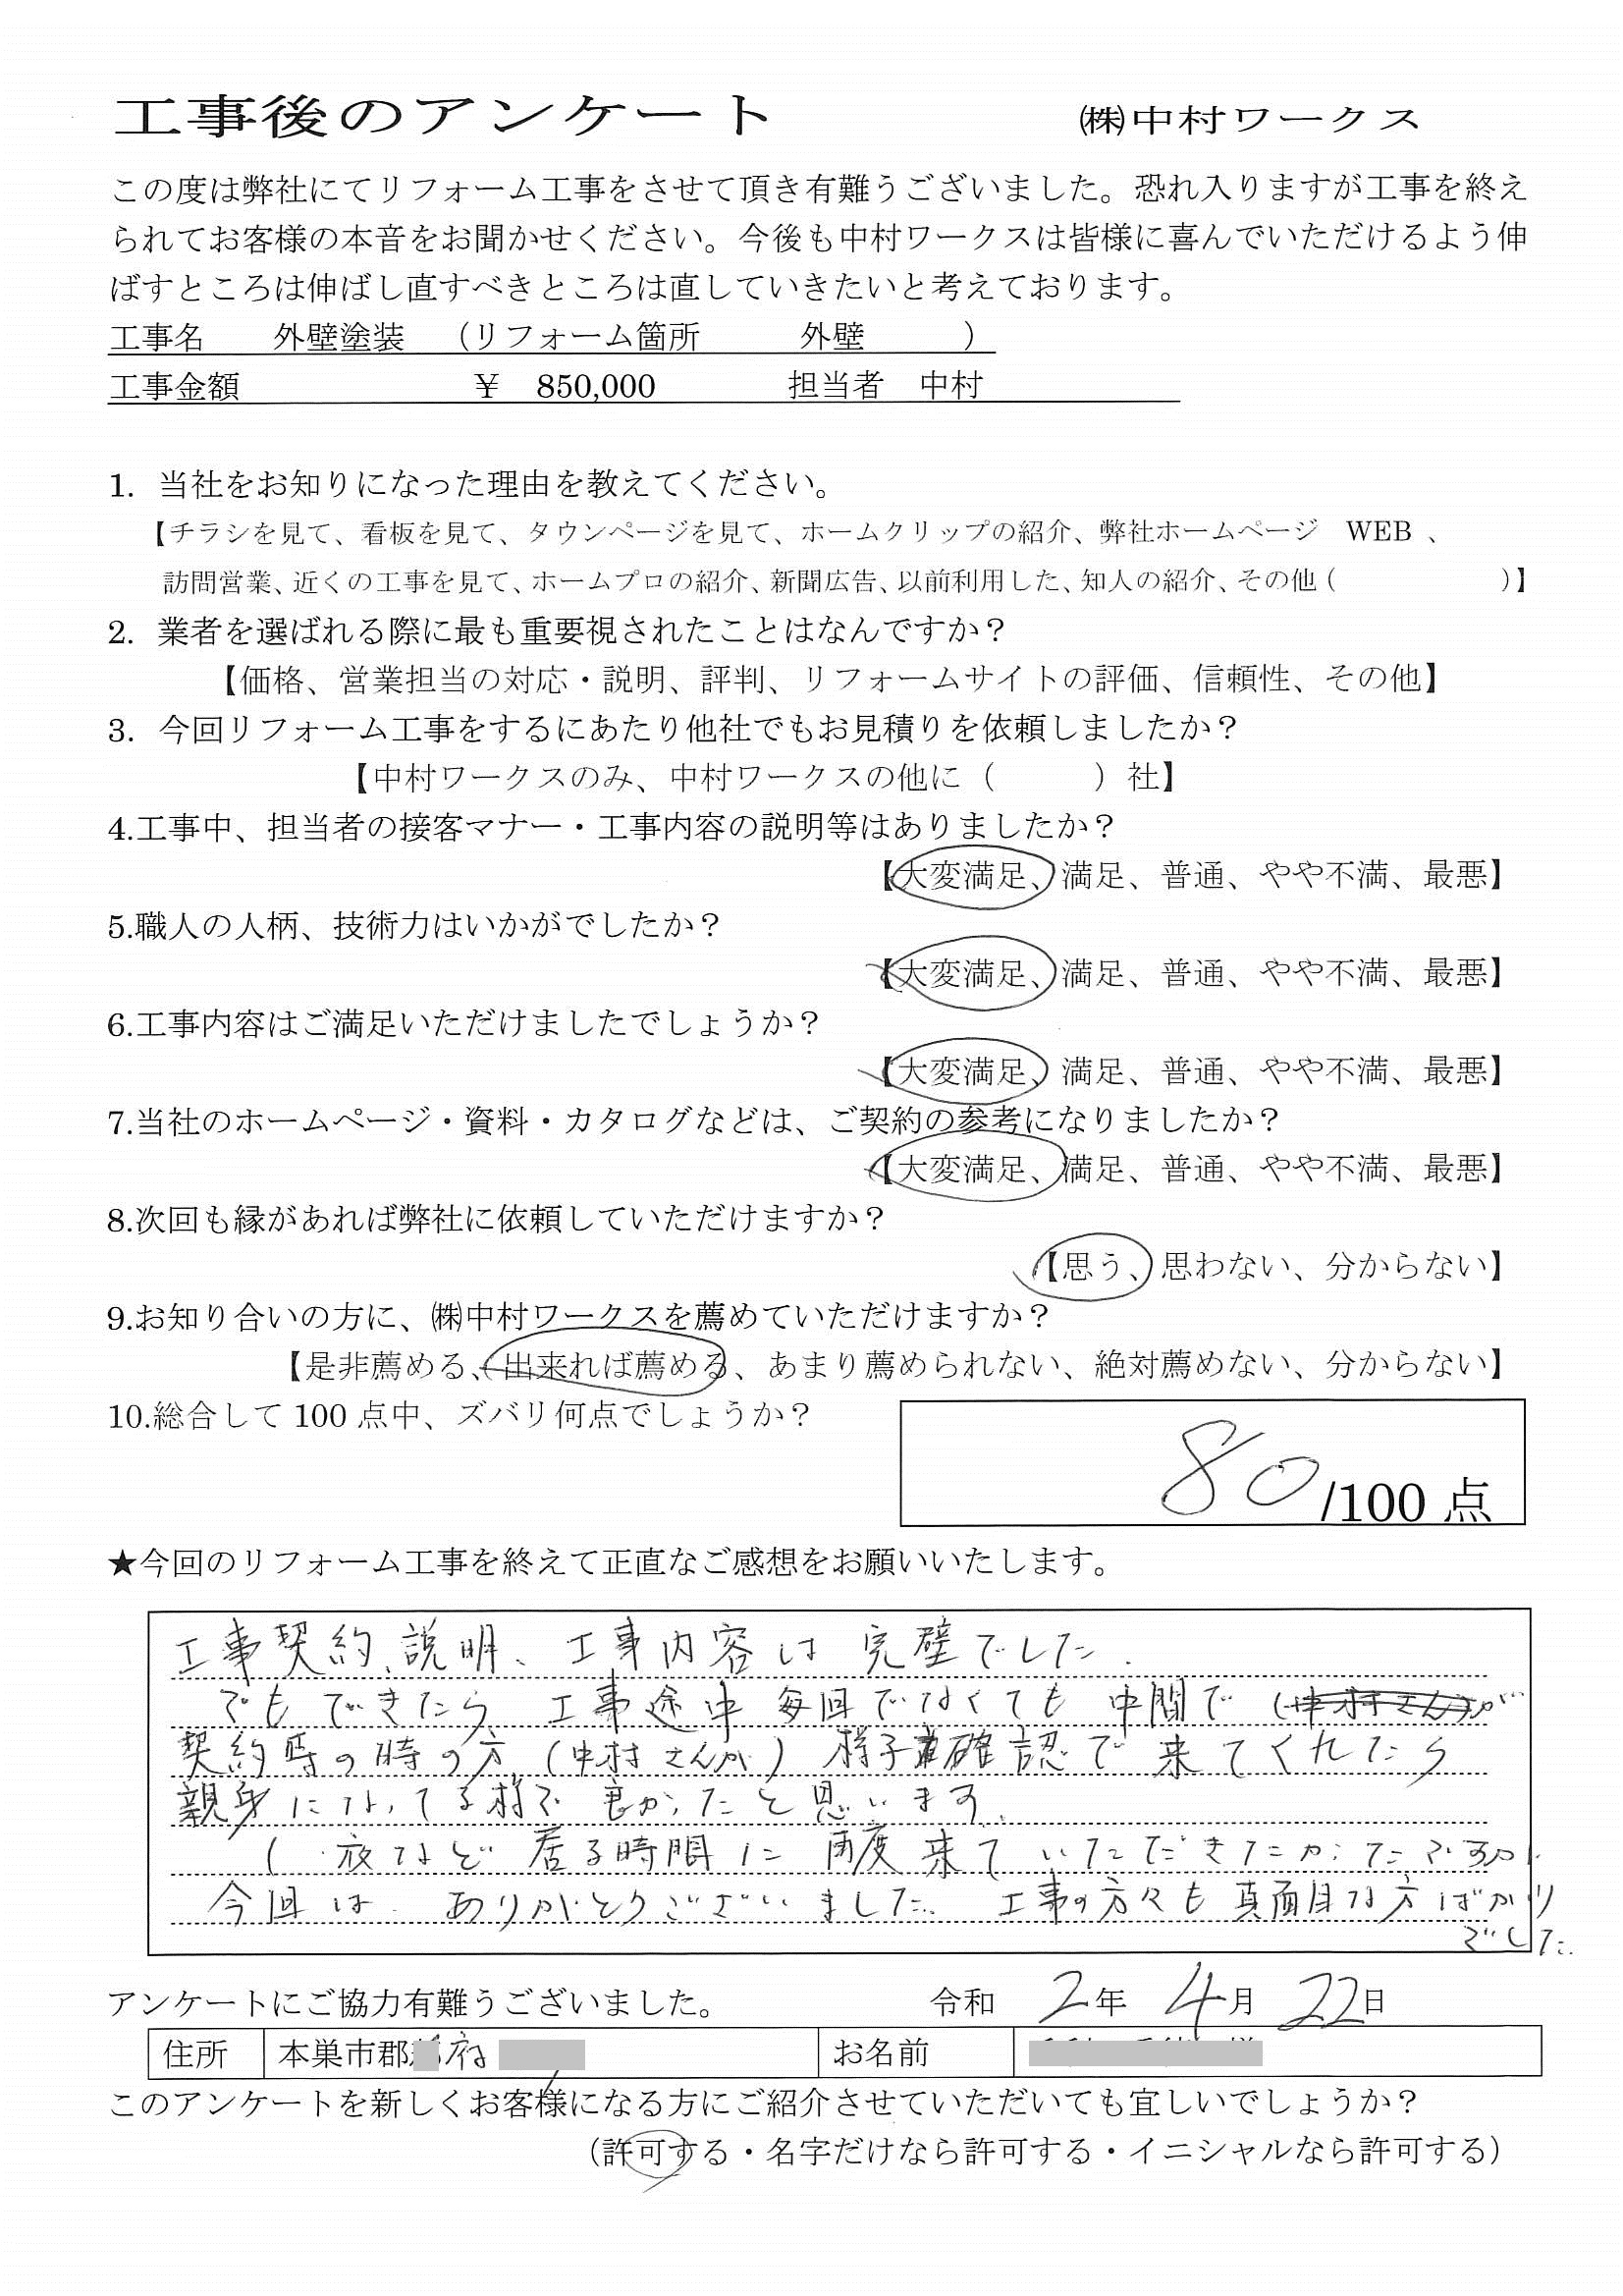 工事後のアンケート ㈱中村ワークス
この度は弊社にてリフォーム工事をさせて頂き有難うございました。恐れ入りますが工事を終え
られてお客様の本音をお聞かせください。今後も中村ワークスは皆様に喜んでいただけるよう伸
ばすところは伸ばし直すべきところは直していきたいと考えております。
工事名 外壁塗装 （リフォーム箇所 外壁 ）
工事金額 ￥ 850,000 担当者 中村
1. 当社をお知りになった理由を教えてください。
【チラシを見て、看板を見て、タウンページを見て、ホームクリップの紹介、弊社ホームページ WEB 、
訪問営業、近くの工事を見て、ホームプロの紹介、新聞広告、以前利用した、知人の紹介、その他（ ）】
2. 業者を選ばれる際に最も重要視されたことはなんですか？
【価格、営業担当の対応・説明、評判、リフォームサイトの評価、信頼性、その他】
3. 今回リフォーム工事をするにあたり他社でもお見積りを依頼しましたか？
【中村ワークスのみ、中村ワークスの他に（ ）社】
4.工事中、担当者の接客マナー・工事内容の説明等はありましたか？
【大変満足、満足、普通、やや不満、最悪】
5.職人の人柄、技術力はいかがでしたか？
【大変満足、満足、普通、やや不満、最悪】
6.工事内容はご満足いただけましたでしょうか？
【大変満足、満足、普通、やや不満、最悪】
7.当社のホームページ・資料・カタログなどは、ご契約の参考になりましたか？
【大変満足、満足、普通、やや不満、最悪】
8.次回も縁があれば弊社に依頼していただけますか？
【思う、思わない、分からない】
9.お知り合いの方に、㈱中村ワークスを薦めていただけますか？
【是非薦める、出来れば薦める、あまり薦められない、絶対薦めない、分からない】
10.総合して 100 点中、ズバリ何点でしょうか？
80/100 点
★今回のリフォーム工事を終えて正直なご感想をお願いいたします。
工事契約、説明、工事内容は完璧でした.
でもできたら 工事途中 毎回でなくても 中間で (中村さん)が
契約時の時の方 (中村さんが) 様子確認で来てくれたら
親身になってる様で 良かったと思います.
( 夜など 居る時間に 再度来ていただきたかったですが)
今回は ありがとうございました. 工事の方々も真面目な方ばかり
でした.
アンケートにご協力有難うございました。 令和 2年 4月 22日
住所 本巣市郡府 お名前
このアンケートを新しくお客様になる方にご紹介させていただいても宜しいでしょうか？
（許可する・名字だけなら許可する・イニシャルなら許可する）